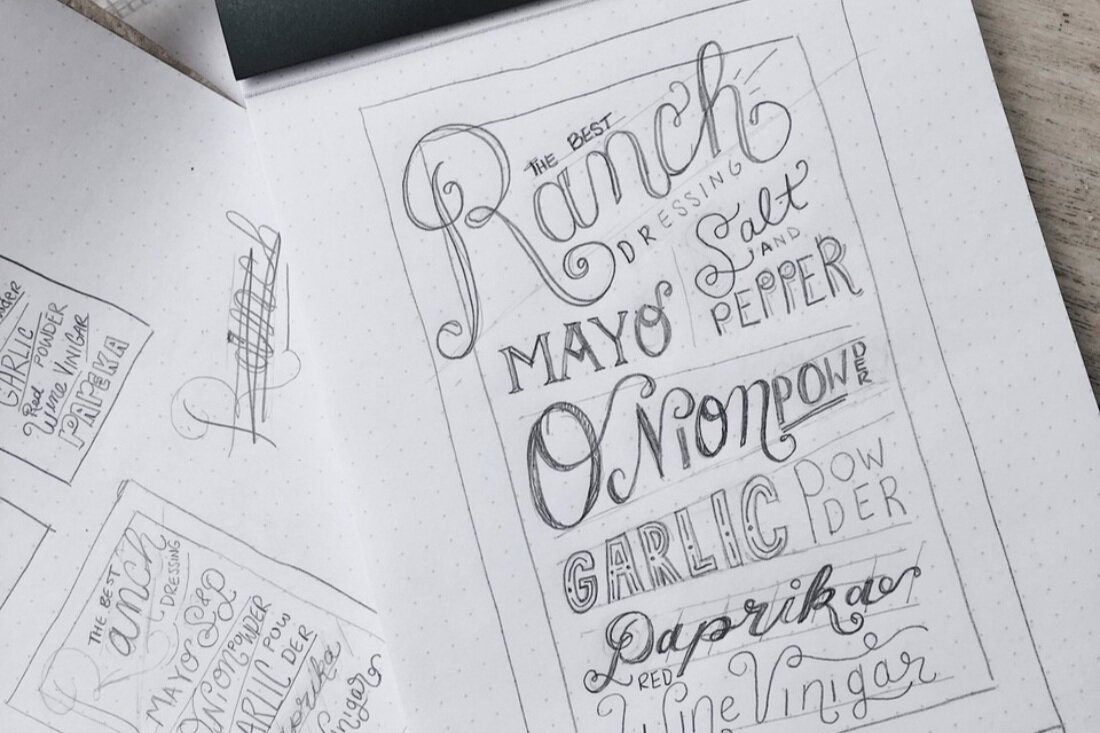 THE BEST
Ranch
DRESSING
MAYO
Salt
AND
PEPPER
ONiONPOWDER
GARLIC POWDER
Paprika
RED
Wine Vinigar
GARLIC
POWDER
Red
Wine VINIGAR
PAPRIKA
Ranch
THE BEST
Ranch
DRESSING
MAYO S&P
ONionPOWDER
GARLIC POWDER